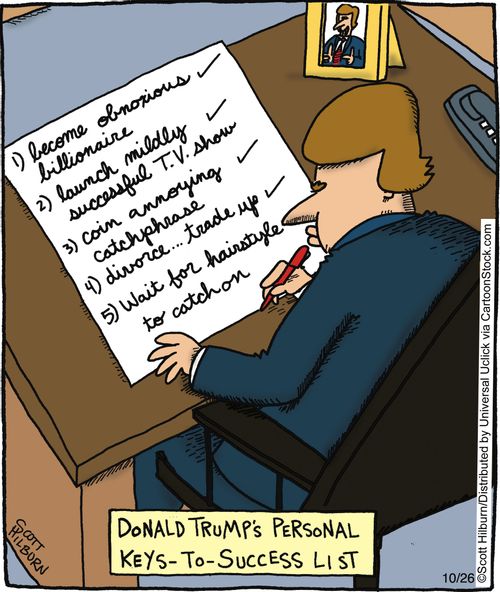 1) become obnoxious
billionaire
2) launch mildly
successful T.V. show
3) coin annoying
catchphrase
4) divorce... trade up
5) Wait for hairstyle
to catch on
DONALD TRUMP'S PERSONAL
KEYS-TO-SUCCESS LIST
SCOTT
HILBURN
10/26
©Scott Hilburn/Distributed by Universal Uclick via CartoonStock.com